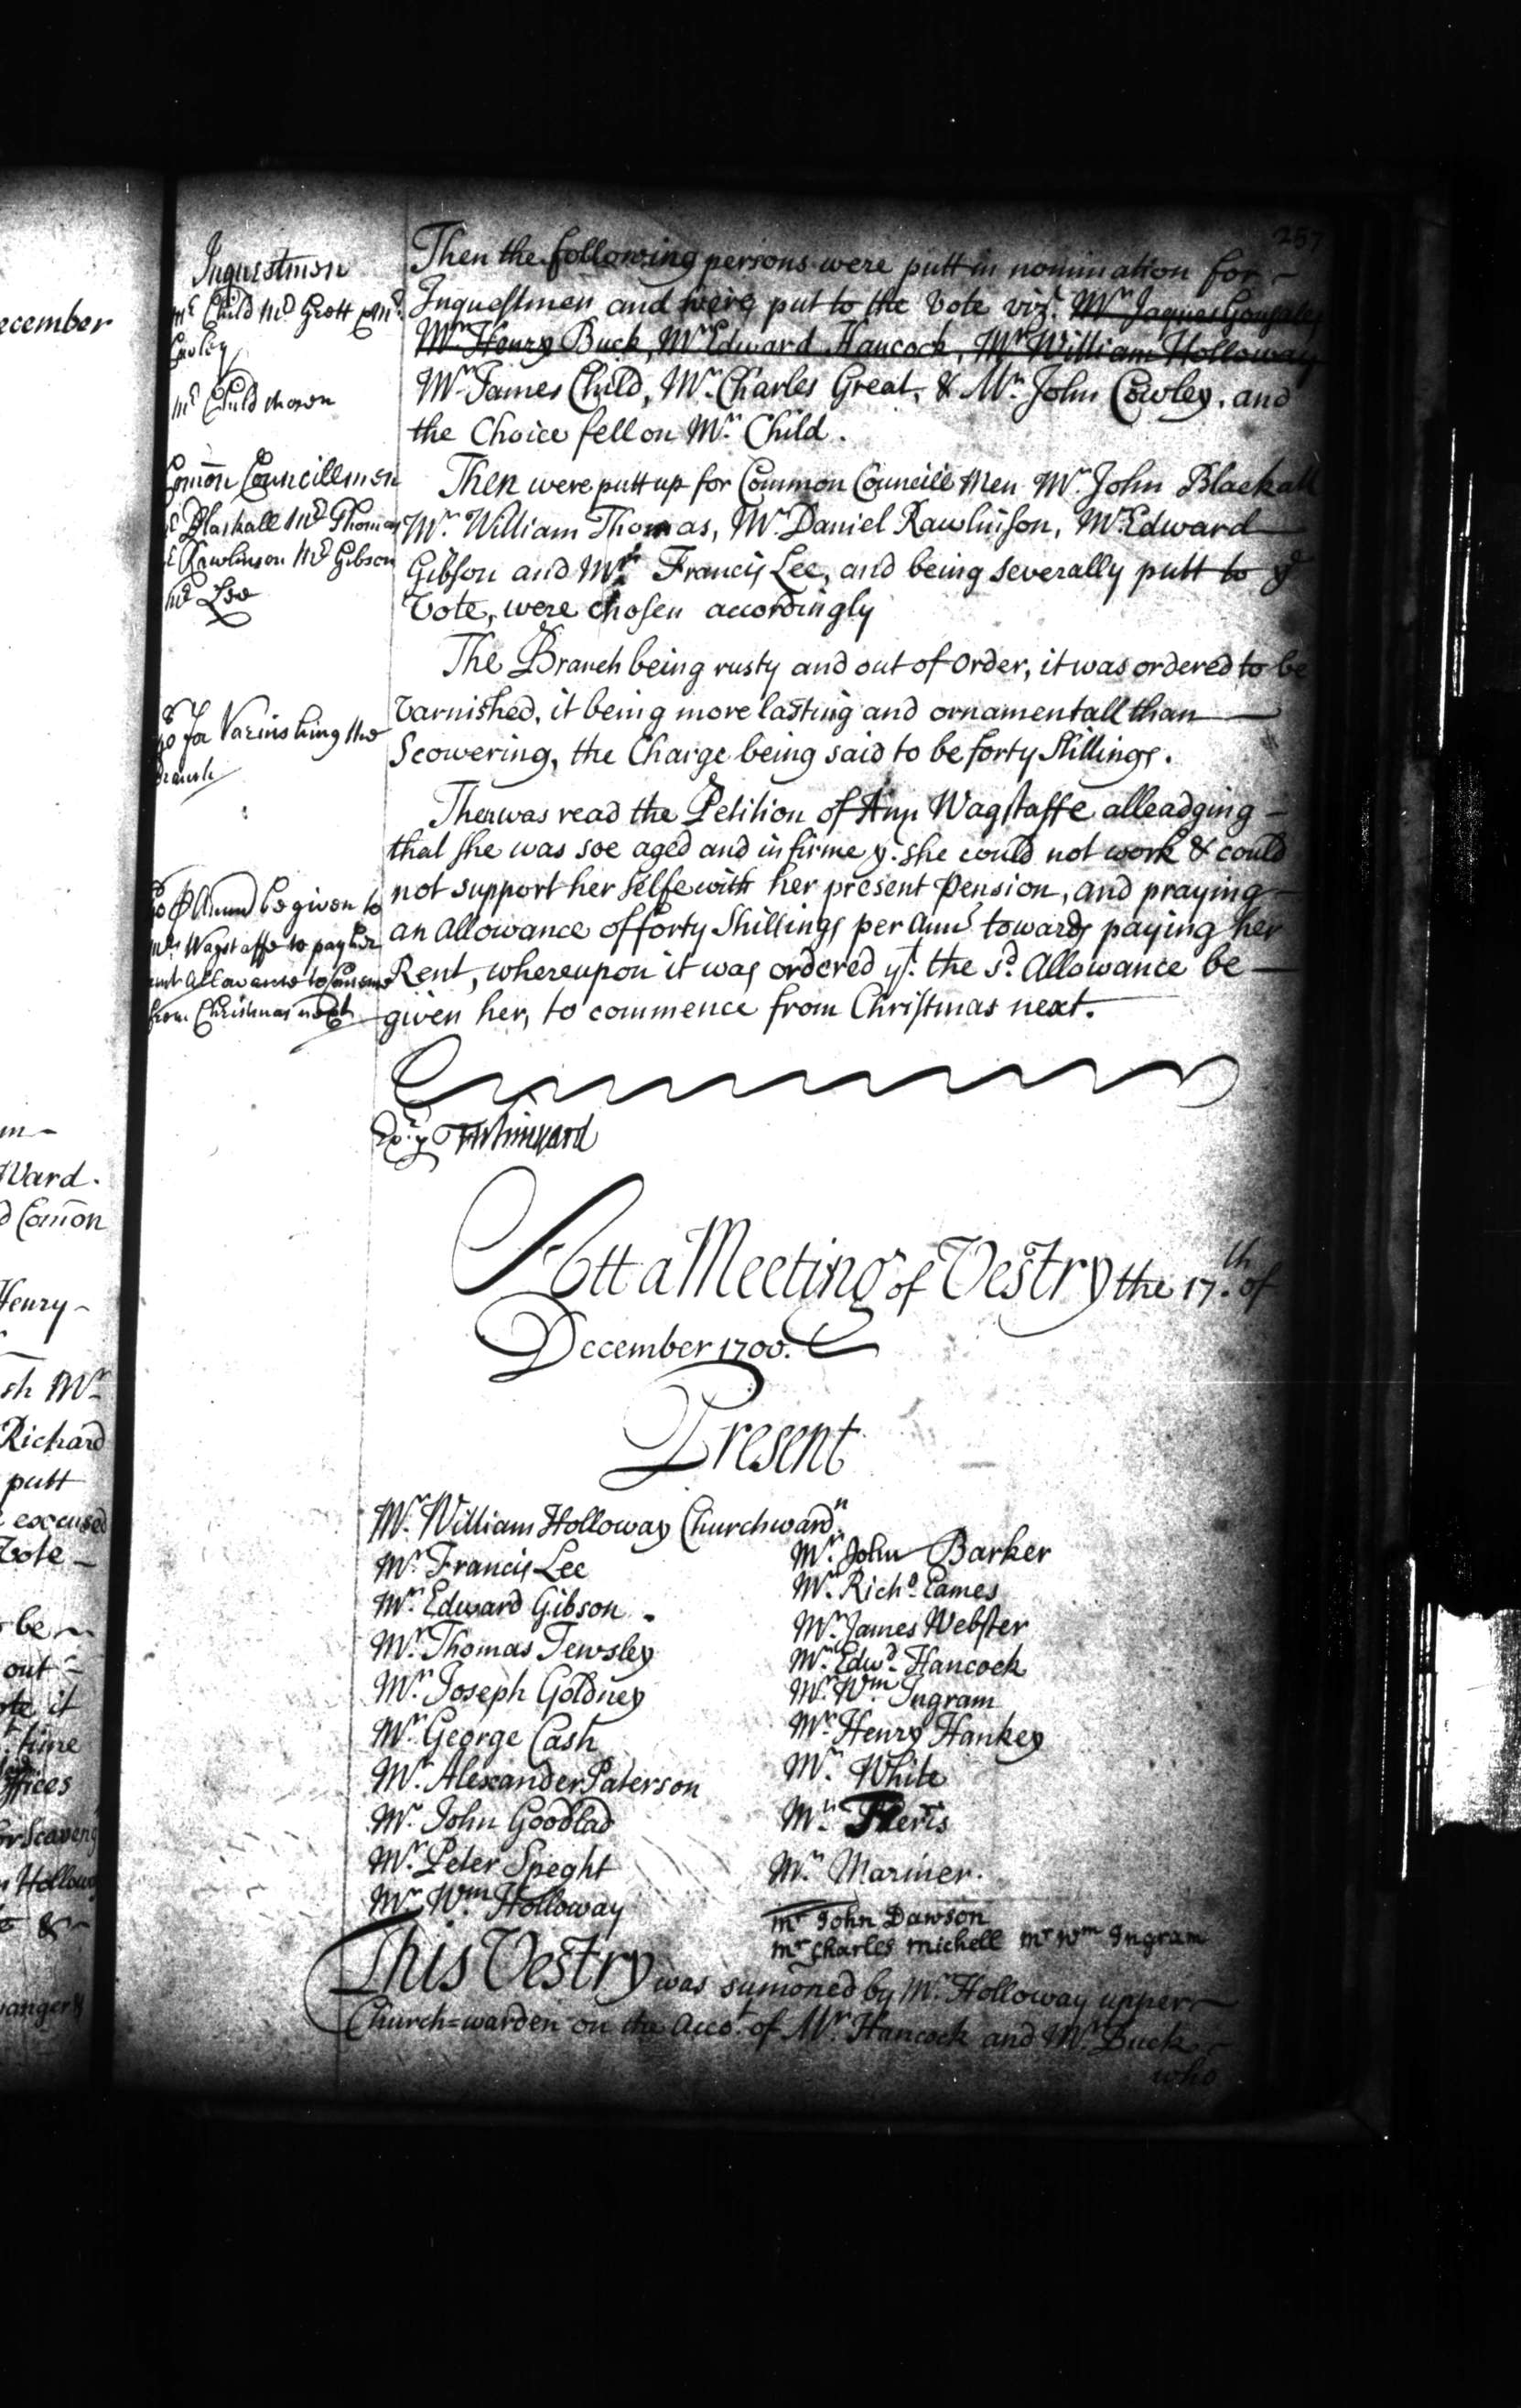 257
Inquestmen
Mr Child Mr Grott & Mr
Cowley
Mr Child chosen
Then the following persons were putt in nomination for
Inquestmen and were put to the Vote vizt. Mr Jaques Gonsales
Mr Henry Buck, Mr Edward Hancock, Mr William Holloway
Mr James Child, Mr Charles Great, & Mr John Cowley, and
the Choice fell on Mr Child.
Comon Councillmen
Mr Blackall Mr Thomas
Mr Rawlinson Mr Gibson
Mr Lee
Then were putt up for Common Councill Men Mr John Blackall
Mr William Thomas, Mr Daniel Rawlinson, Mr Edward
Gibson and Mr Francis Lee, and being severally putt to ye
Vote, were chosen accordingly
for Varnishing the
Branch
The Branch being rusty and out of order, it was ordered to be
Varnished, it being more lasting and ornamentall than
Scowering, the Charge being said to be forty Shillings.
Annum be given to
Mrs Wagstaffe to pay her
rent Allowance to Comence
from Christmas next
There was read the Petition of Ann Wagstaffe alleadging
that she was soe aged and infirme yt. she could not work & could
not support her selfe with her present Pension, and praying
an Allowance of forty Shillings per Annu towards paying her
Rent, whereupon it was ordered yt. the sd. Allowance be
given her, to commence from Christmas next.
Att a Meeting of Vestry the 17th. of
December 1700.
Present
Mr. William Holloway Churchwardn.
Mr. Francis Lee
Mr. Edward Gibson
Mr. Thomas Tewsley
Mr. Joseph Goldney
Mr. George Cash
Mr. Alexander Paterson
Mr. John Goodlad
Mr. Peter Speght
Mr. Wm Holloway
Mr. John Barker
Mr. Richd Eames
Mr. James Webster
Mr. Edwd. Hancock
Mr. Wm Ingram
Mr. Henry Hankey
Mr. White
Mr.
Mr. Mariner.
Mr John Dawson
Mr Charles Michell Mr Wm Ingram
This Vestry was sumoned by Mr. Holloway upper
Church=warden on the Accot. of Mr. Hancock and Mr. Buck
who